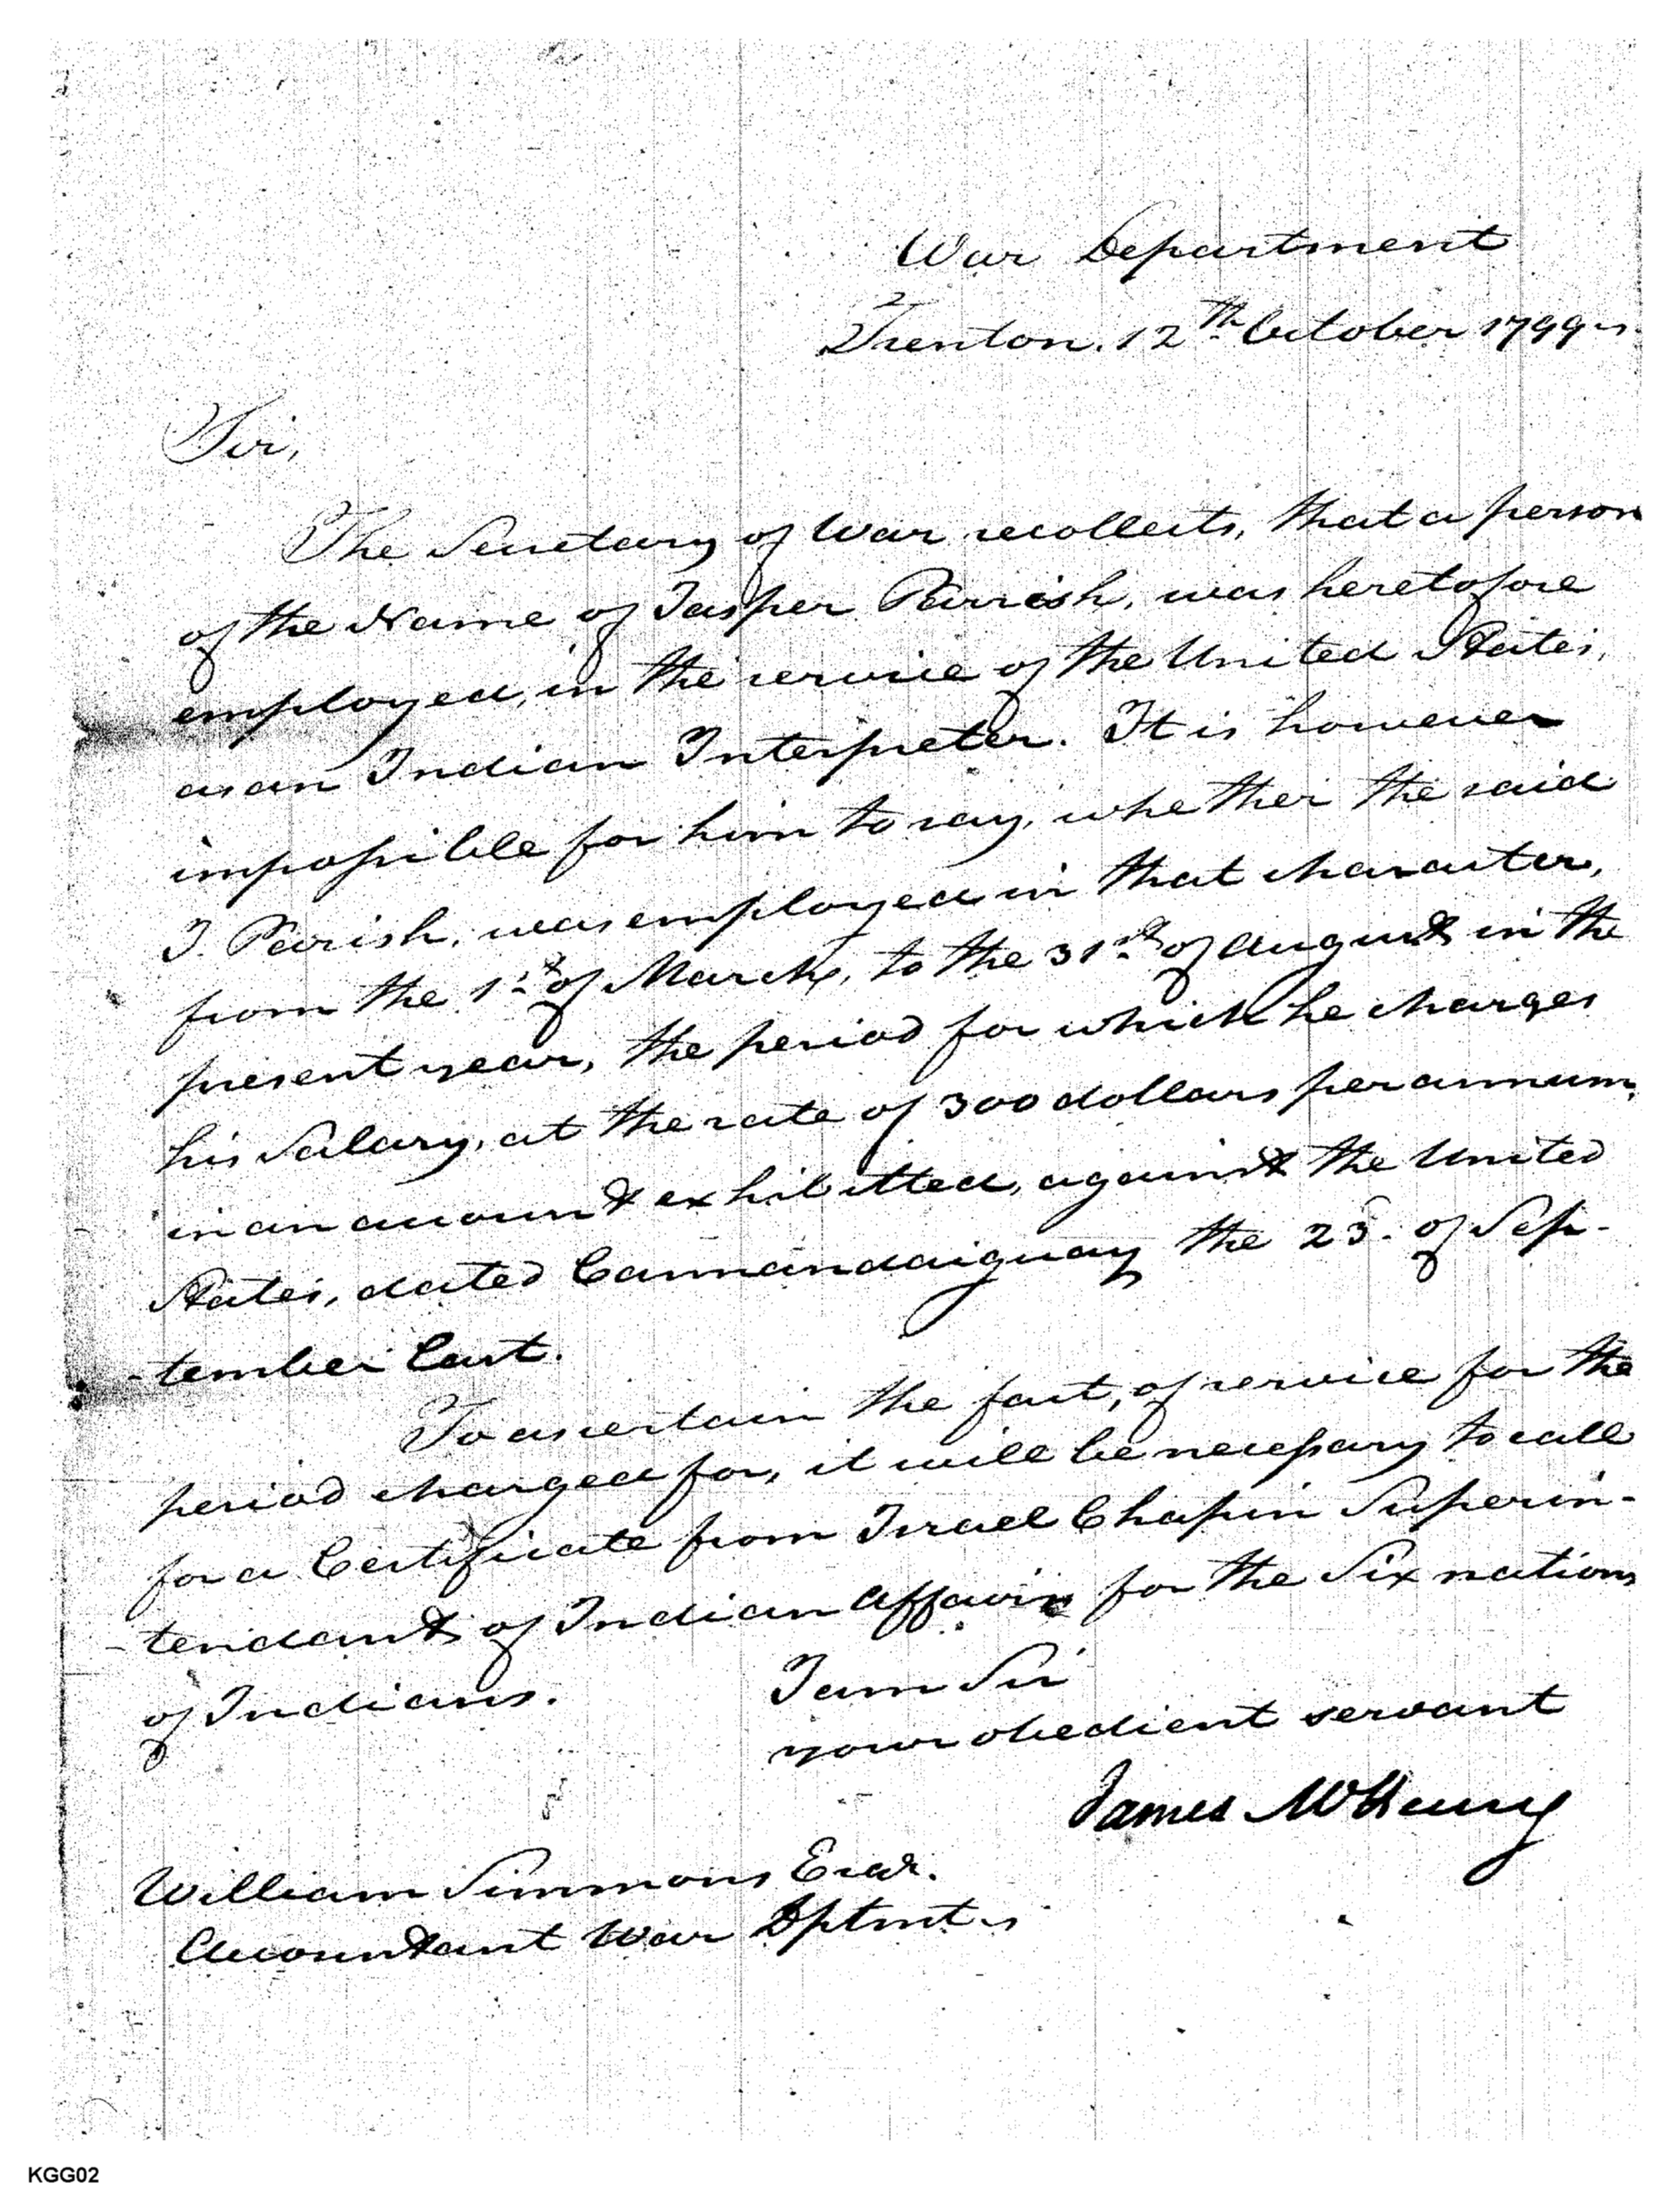 War Department
Trenton. 12th October 1799
Sir,
The Secretary of War recollects, that a person
of the Name of Jasper Parrish, was heretofore
employed, in the service of the United States,
as an Indian Interpreter. It is however
impossible for him to say, whether the said
J. Parish, was employed in that character,
from the 1st of March, to the 31st of August in the
present year, the period for which he charges
his Salary, at the rate of 300 dollars per annum,
in an account exhibitted, against the United
States, dated Cannandaiguay the 23. of Sep-
-tember last.
To ascertain the fact, of service for the
period charged for, it will be necessary to call
for a Certificate from Israel Chapin Superin-
-tendant of Indian Affairs for the Six nations
of Indians.
I am Sir
your obedient servant
James McHenry
William Simmons Esqr.
Accountant War Dptmt.
KGG02